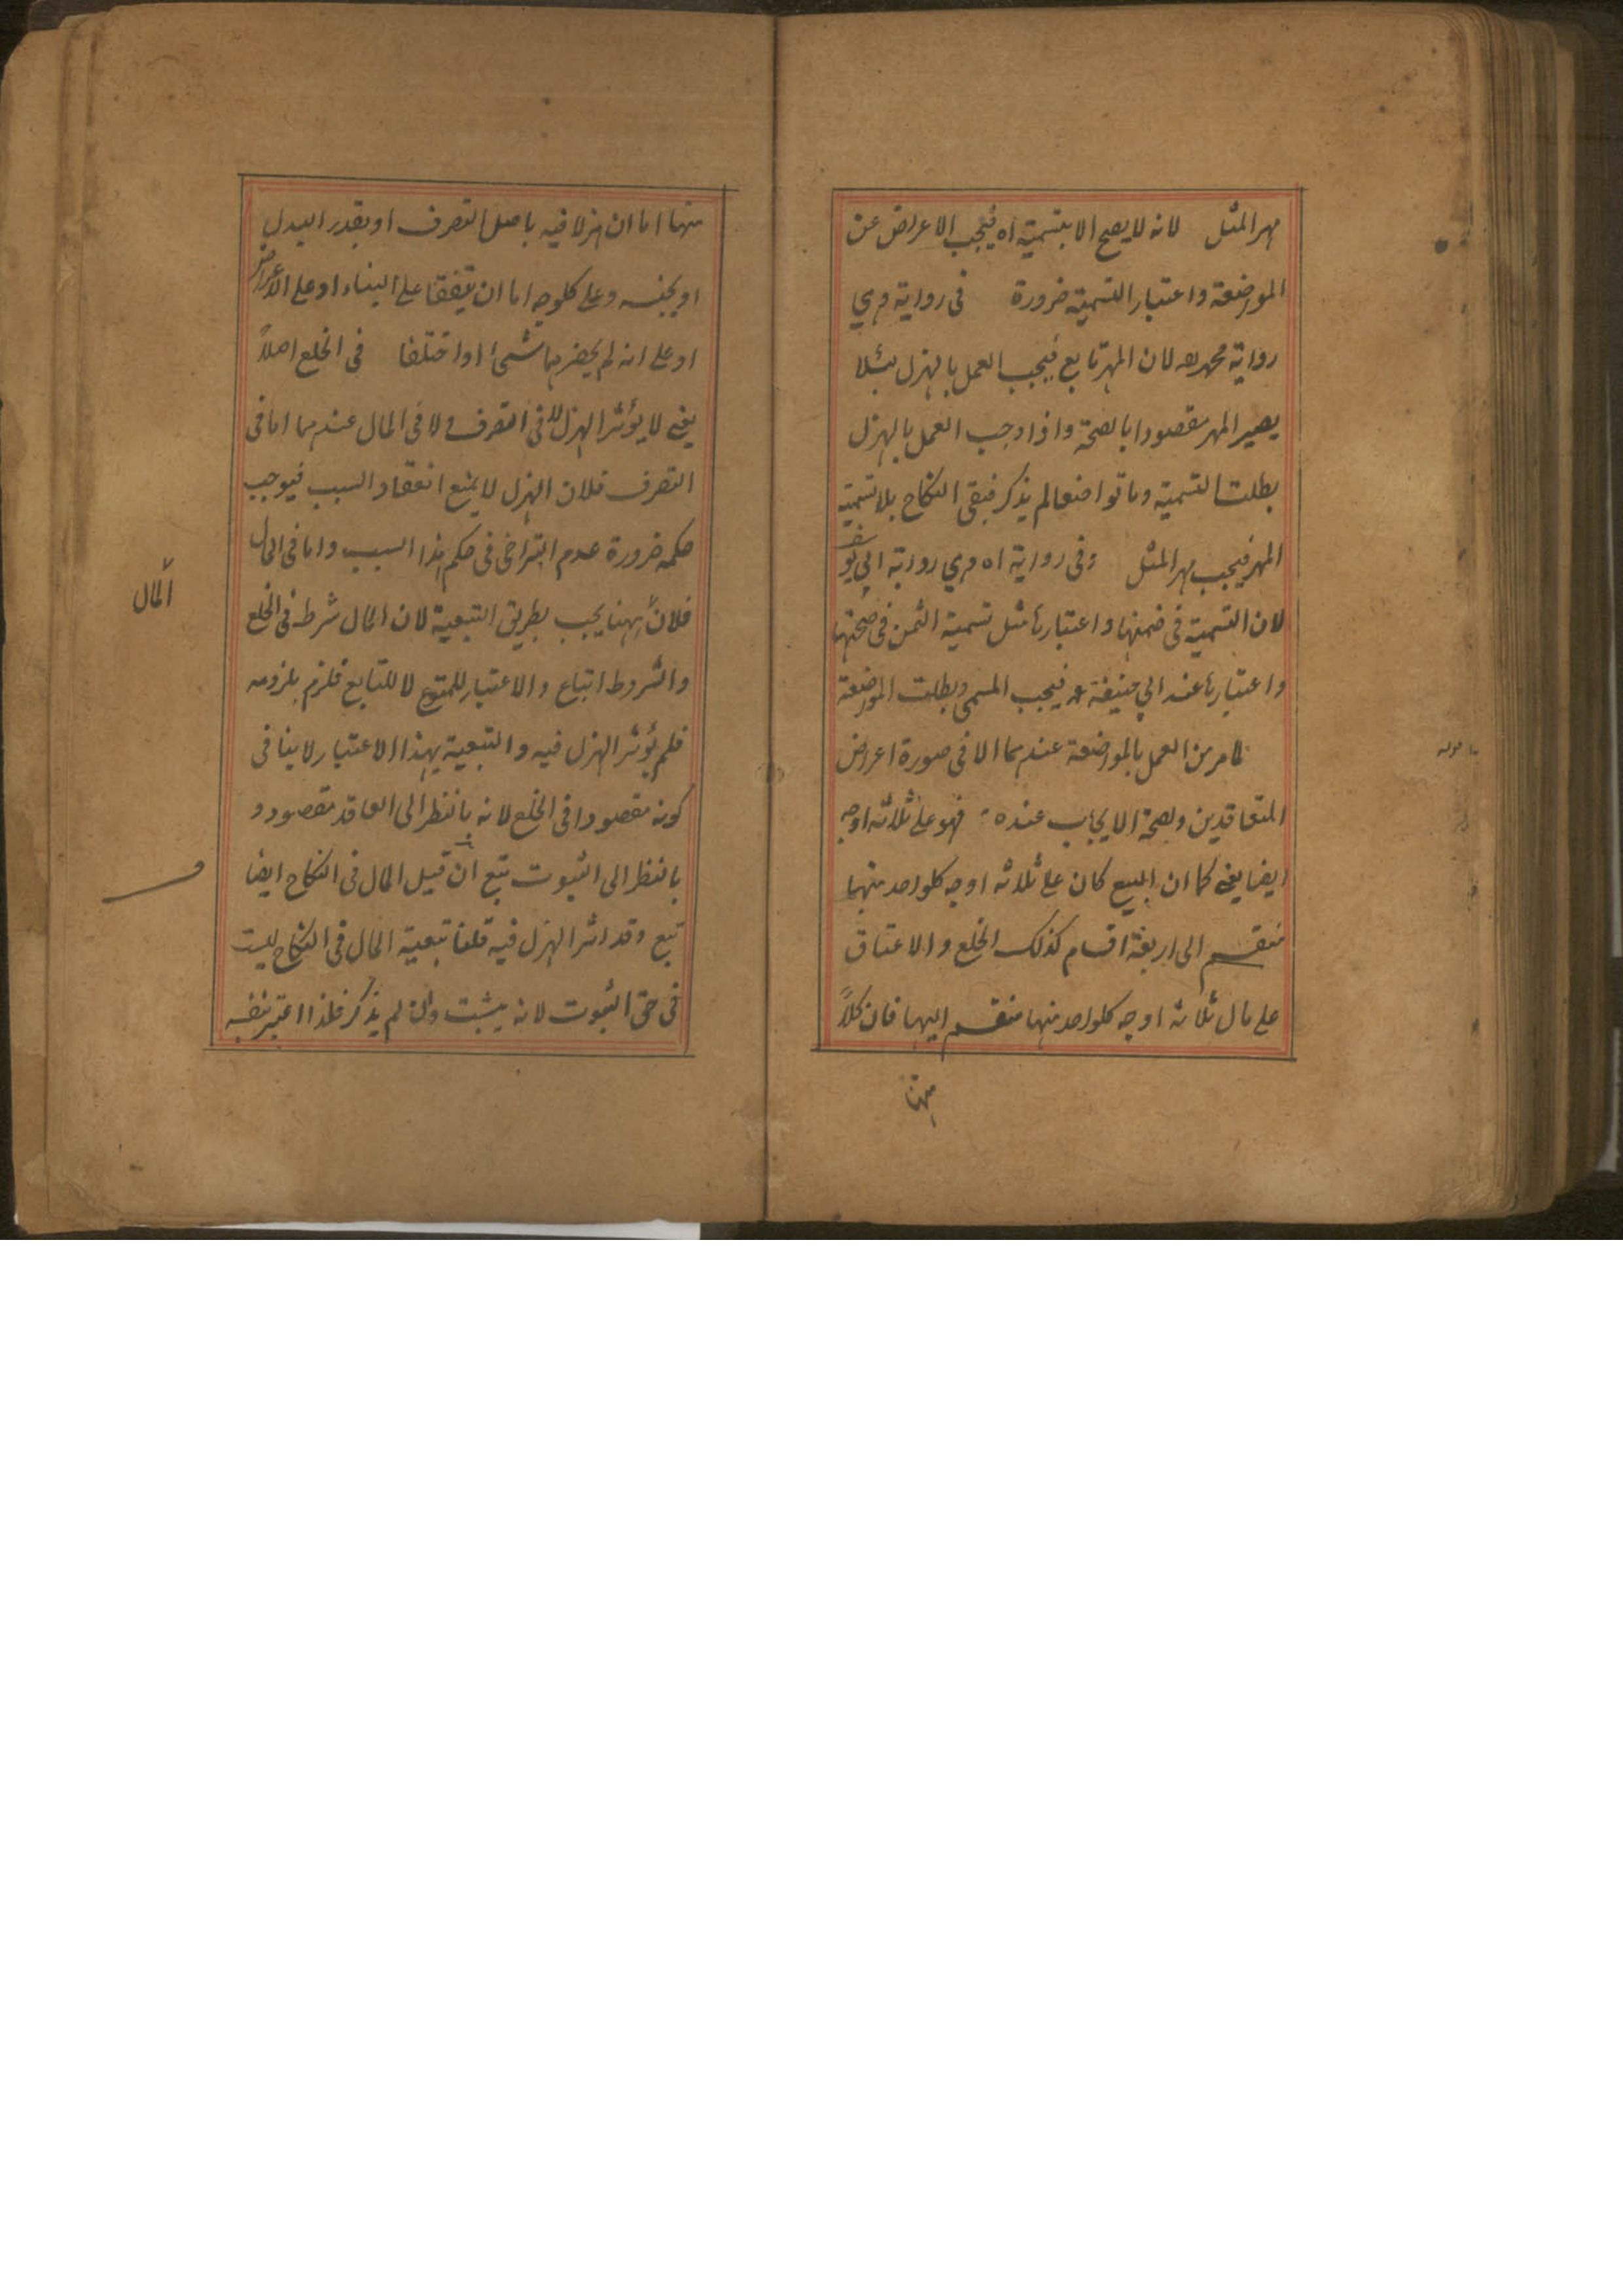 مهر المثل لانه لا يصح الا بتسمية اه فيجب الاعراض عن
المواضعة واعتبار التسمية ضرورة فى رواية وهي
رواية محمد رح لان المهر تابع فيجب العمل بالهزل لئلا
يصير المهر مقصودا بالصحة واذا وجب العمل بالهزل
بطلت التسمية وما تواضعا لم يذكر فبقى النكاح بلا تسمية
المهر فيجب مهر المثل وفى رواية اه وهي رواية ابي يوسف
لان التسمية فى ضمنها واعتبارها مثل تسمية الثمن فى صحتها
واعتبارها عند ابي حنيفة رح فيجب المسمى وبطلت المواضعة
لما مر من العمل بالمواضعة عندهما الا فى صورة اعراض
المتعاقدين وبصحة الايجاب عنده فهو على ثلاثه اوجه
ايضا يعنى كما ان البيع كان على ثلاثه اوجه كلواحد منهما
منقسم الى اربعة اقسام كذلك الخلع والاعتاق
على مال ثلاثه اوجه كلواحد منها منقسم اليها فان كلاً
منها اما ان هزلا فيه باصل التصرف او بقدر البدل
او بجنسه وعلى كلوجه اما ان يتفقا على البناء او على الاعراض
او على انه لم يحضرهما شئ او اختلفا فى الخلع اصلاً
يعنى لا يؤثر الهزل لا فى التصرف ولا فى المال عندهما اما فى
التصرف فلان الهزل لا يمنع انعقاد السبب فيوجب
حكمه ضرورة عدم التراخى فى حكم هذا السبب واما فى المال
فلان ههنا يجب بطريق التبعية لان المال شرط فى الخلع
المال
والشروط اتباع والاعتبار للمتبوع لا للتابع فلزم بلزومه
فلم يؤثر الهزل فيه والتبعية بهذا الاعتبار لا ينافى
كونه مقصودا فى الخلع لانه بالنظر الى العاقد مقصود و
بالنظر الى الثبوت تبع ان قيل المال فى النكاح ايضا
تبع وقد اثر الهزل فيه قلنا تبعية المال فى النكاح ليست
فى حق الثبوت لانه يثبت وان لم يذكر فلذا اعتبر بنفسه